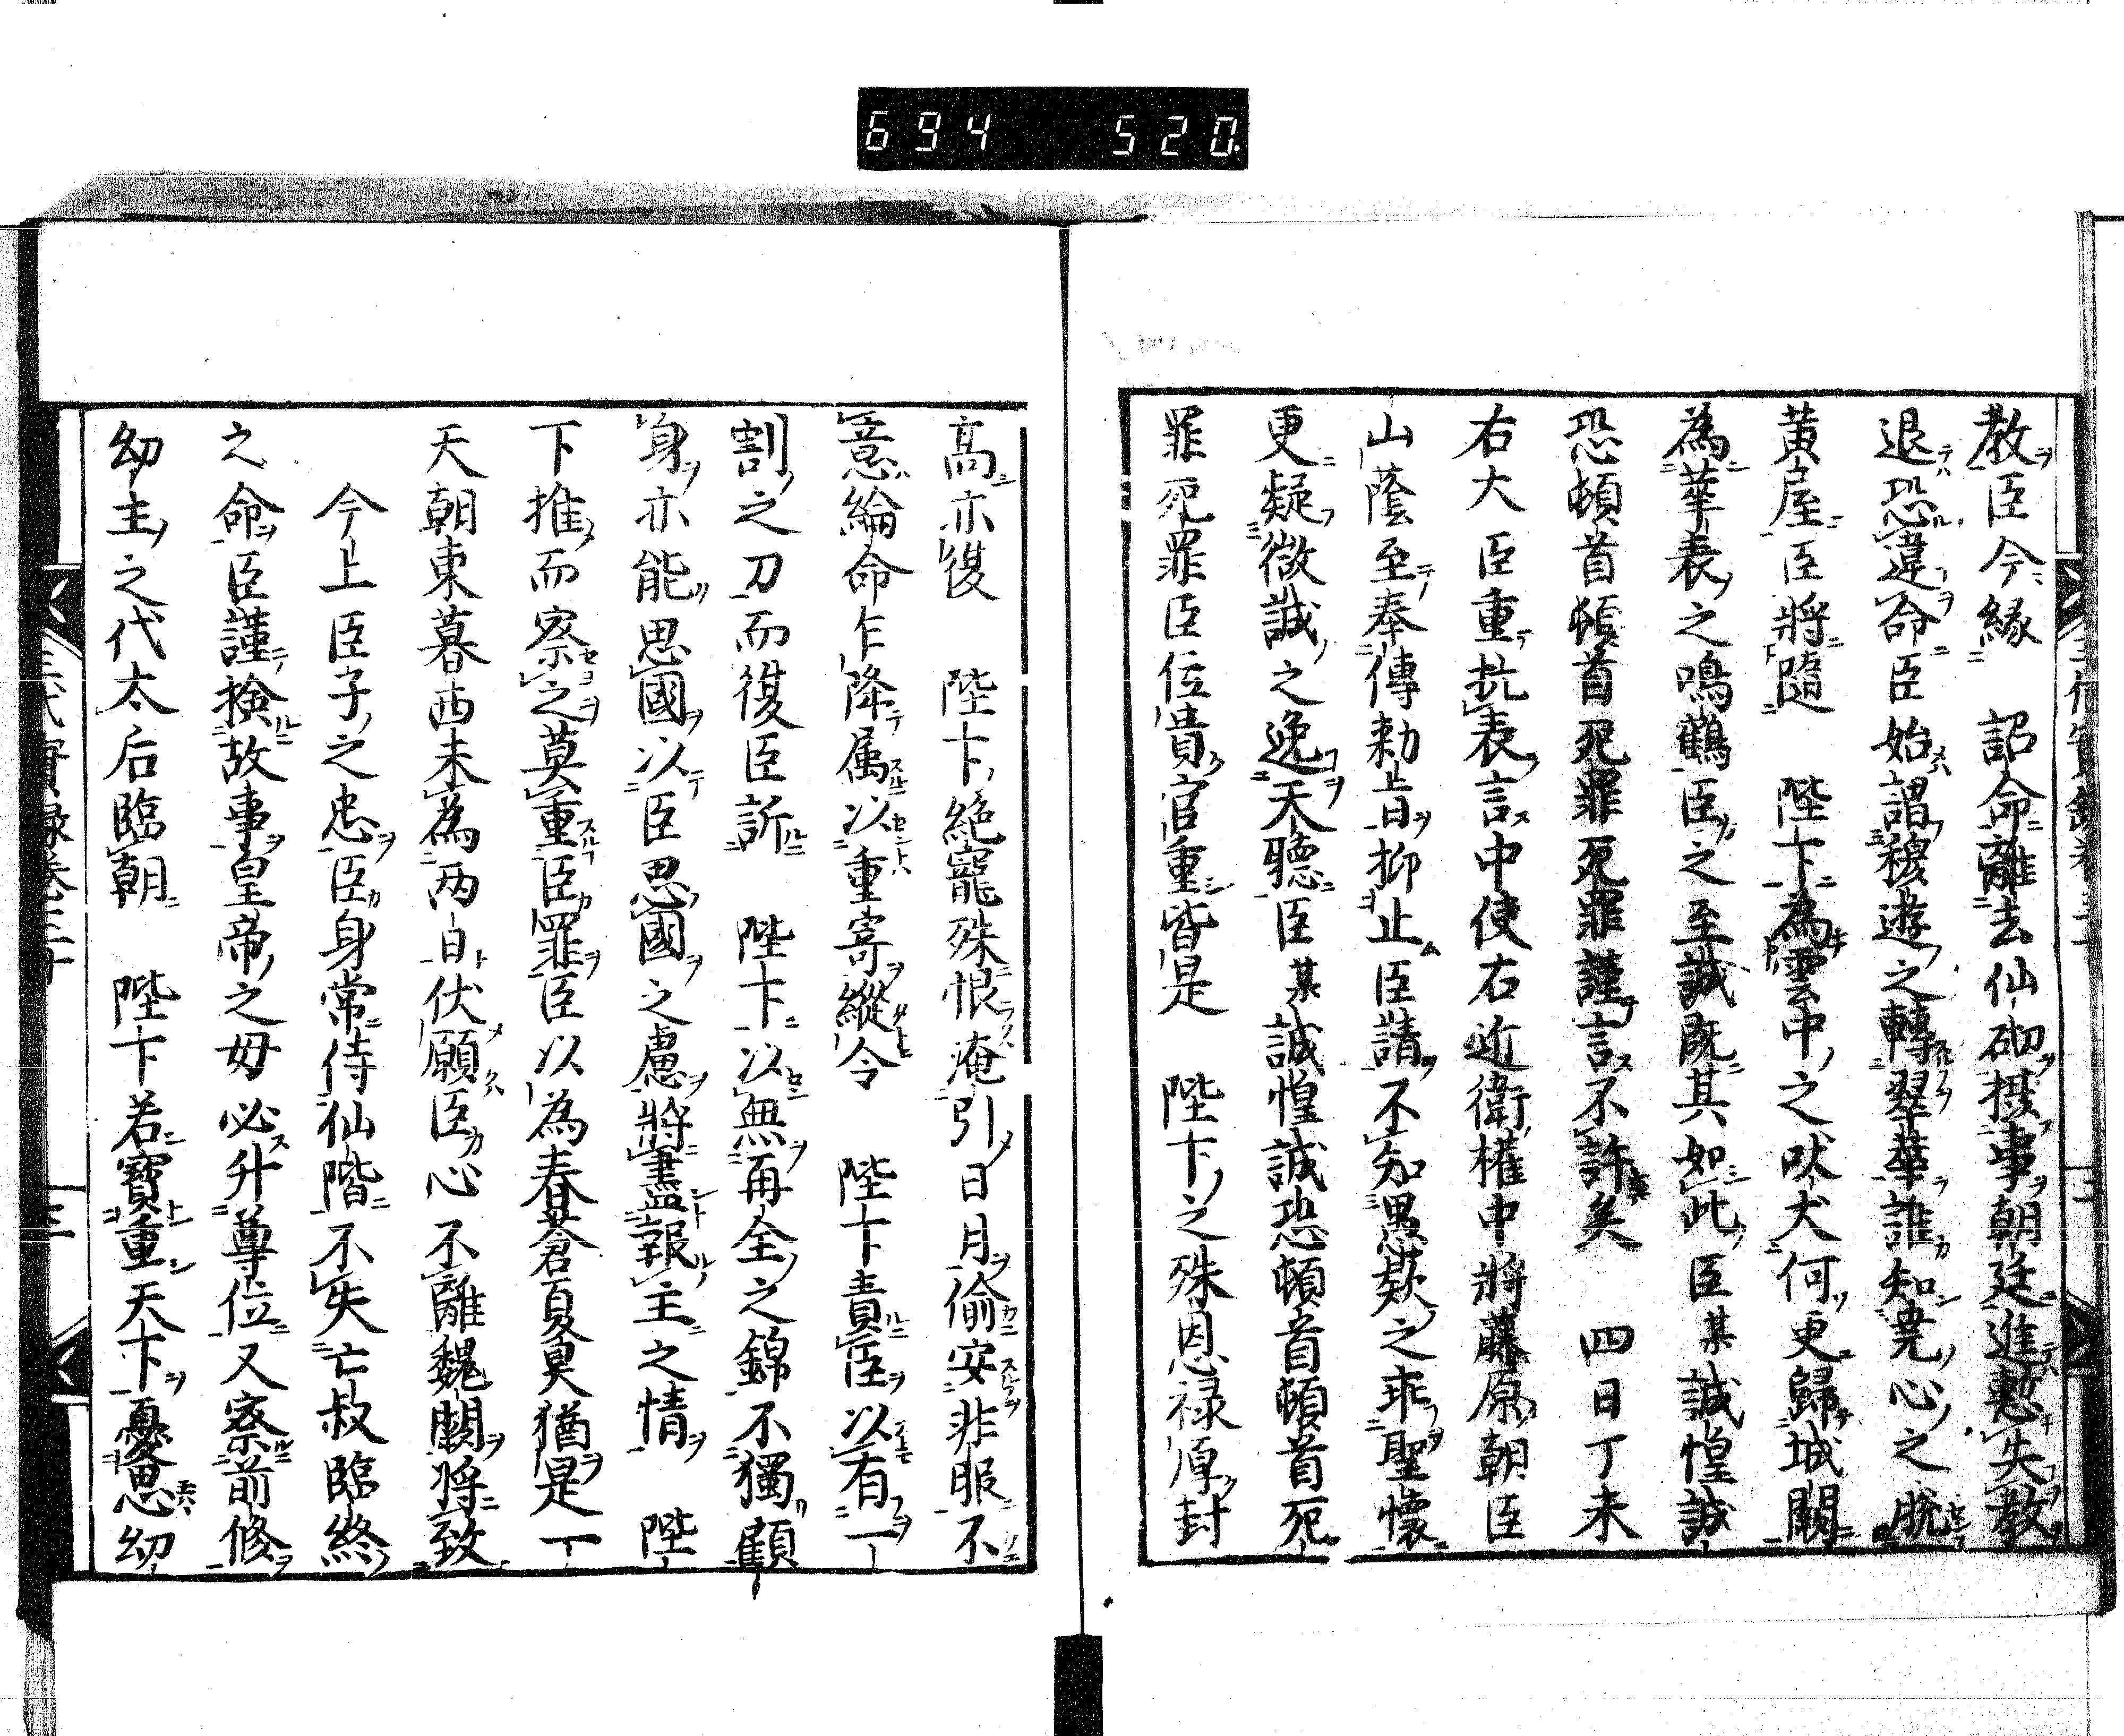 694 520
教臣今緣 詔命離去仙砌摂事朝廷進慙失教
退恐違命臣始謂穆遊之轉翠華誰知堯心之脱
黄屋臣將隨 陛下為雲中之吠犬何更歸城闕
為華表之鳴鶴臣之至誠既其如此臣某誠惶誠
恐頓首頓首死罪死罪謹言不許矣 四日丁未
右大臣重抗表言中使右近衛權中將藤原朝臣
山蔭至奉傳勅旨抑止臣請不知愚款之乖聖懷
更疑微誠之逸天聽臣某誠惶誠恐頓首頓首死
罪死罪臣位貴官重皆是 陛下之殊恩禄厚封
高亦復 陛下絶寵殊恨淹引日月偷安非服不
意綸命乍降属以重寄縱令 陛下責臣以有一
割之刀而復臣訴 陛下以無再全之錦不獨顧
身亦能思國以臣思國之慮將盡報主之情 陛
下推而察之莫重臣罪臣以為春蒼夏昊猶是一
天朝東暮西未為两日伏願臣心不離魏闕將致
今上臣子之忠臣身常侍仙階不失亡叔臨終
之命臣謹檢故事皇帝之母必升尊位又察前修
幼主之代太后臨朝 陛下若寶重天下憂思幼
三代實録卷三十
三